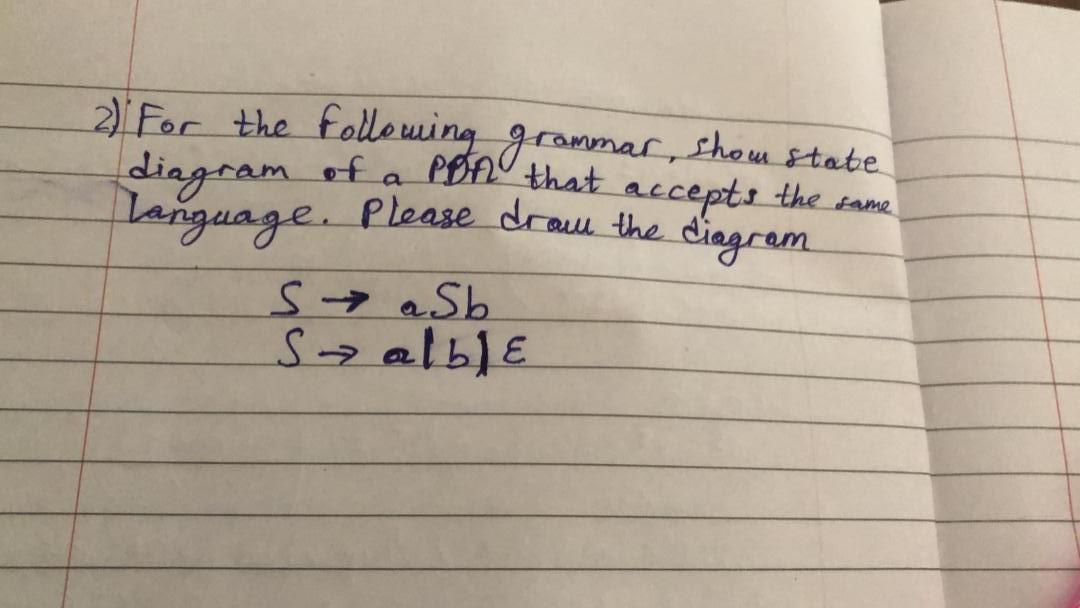 2) For the following grammar, show state
diagram of a PDA that accepts the same
language. Please draw the diagram
S → aSb
S → a|b|ε